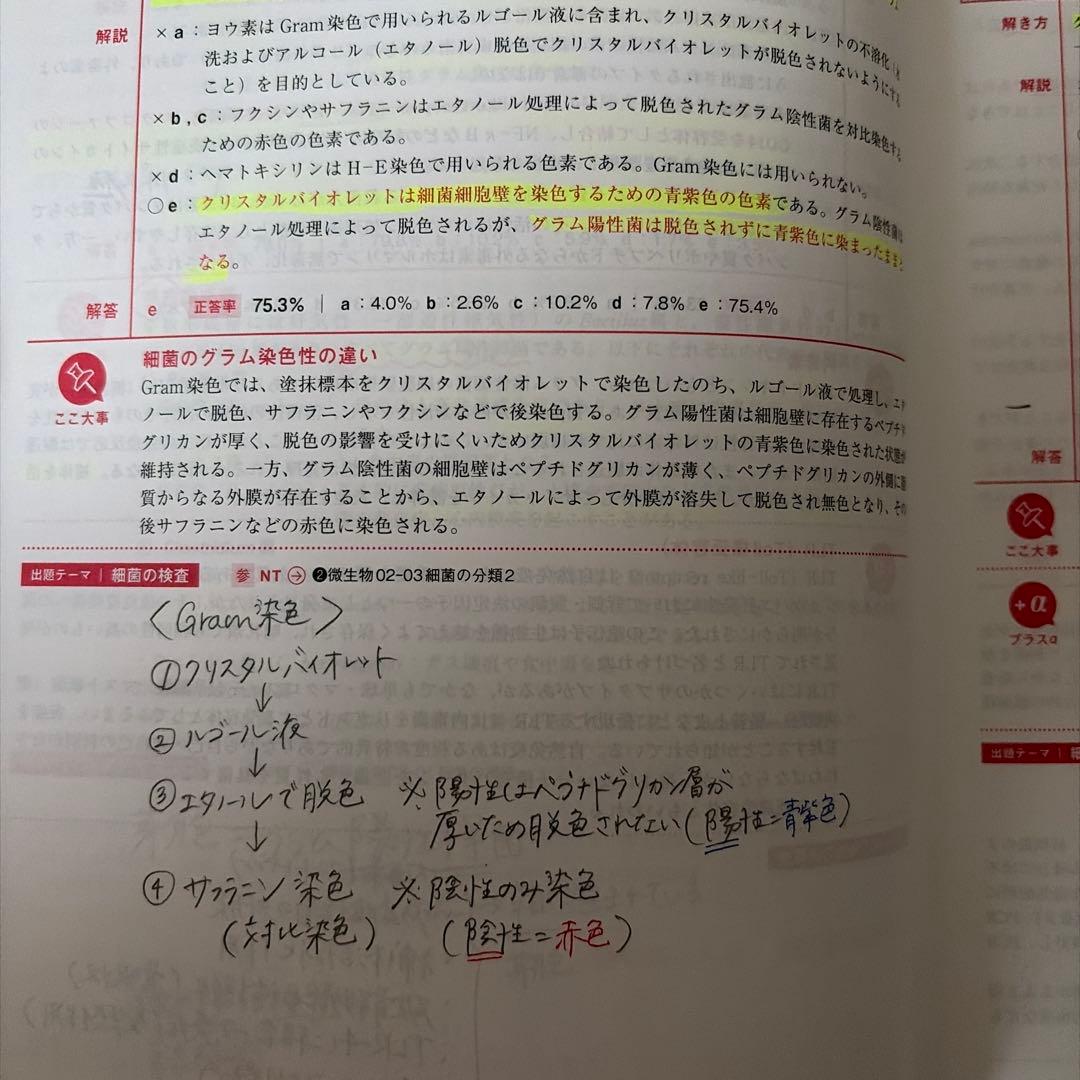 解説
× a：ヨウ素はGram染色で用いられるルゴール液に含まれ、クリスタルバイオレットの不溶化（水
洗およびアルコール（エタノール）脱色でクリスタルバイオレットが脱色されないようにする
こと）を目的としている。
× b , c：フクシンやサフラニンはエタノール処理によって脱色されたグラム陰性菌を対比染色する
ための赤色の色素である。
× d：ヘマトキシリンはH-E染色で用いられる色素である。Gram染色には用いられない。
○ e：クリスタルバイオレットは細菌細胞壁を染色するための青紫色の色素である。グラム陰性菌は
エタノール処理によって脱色されるが、グラム陽性菌は脱色されずに青紫色に染まったままと
なる。
解答 e 正答率 75.3% | a：4.0% b：2.6% c：10.2% d：7.8% e：75.4%
ここ大事
細菌のグラム染色性の違い
Gram染色では、塗抹標本をクリスタルバイオレットで染色したのち、ルゴール液で処理し、エタ
ノールで脱色、サフラニンやフクシンなどで後染色する。グラム陽性菌は細胞壁に存在するペプチド
グリカンが厚く、脱色の影響を受けにくいためクリスタルバイオレットの青紫色に染色された状態が
維持される。一方、グラム陰性菌の細胞壁はペプチドグリカンが薄く、ペプチドグリカンの外側に脂
質からなる外膜が存在することから、エタノールによって外膜が溶失して脱色され無色となり、その
後サフラニンなどの赤色に染色される。
出題テーマ | 細菌の検査 参 NT → ❷微生物02-03細菌の分類2
〈Gram染色〉
①クリスタルバイオレット
↓
②ルゴール液
↓
③エタノールで脱色 ※陽性はペプチドグリカン層が
厚いため脱色されない(陽性=青紫色)
↓
④サフラニン染色 ※陰性のみ染色
(対比染色) (陰性=赤色)
解き方
解説
解答
ここ大事
+α
プラスα
出題テーマ